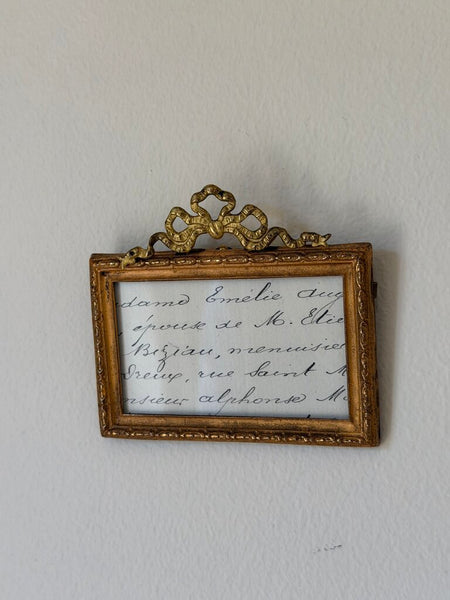 adame Emélie Aug
, épouse de M. Etie
Bizeau, menuisie
Dreux, rue Saint M
nsieur alphonse, Ma